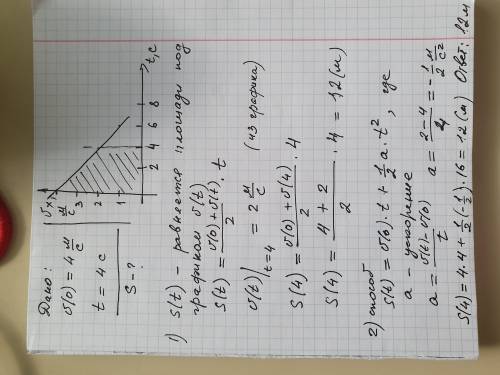 Дано:
v(0) = 4 м/с
t = 4 с
S - ?
vx м/с
4
3
2
1
2 4 6 8 t, с
1) S(t) – равняется площади под
графиком v(t)
S(t) = (v(0) + v(t))/2 · t
v(t)|t=4 = 2 м/с (из графика)
S(4) = (v(0) + v(4))/2 · 4
S(4) = (4 + 2)/2 · 4 = 12 (м)
2) способ
S(t) = v(0) · t + 1/2 a · t², где
a – ускорение
a = (v(t) - v(0))/t a = (2 - 4)/4 = - 1/2 м/с²
S(4) = 4 · 4 + 1/2 (-1/2) · 16 = 12 (м) Ответ: 12 м